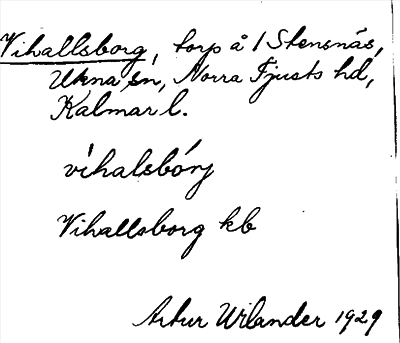 Vihallsborg, torp å / Stensnäs,
Ukna sn, Norra Tjusts hd,
Kalmar l.
víhalsbórj
Vihallsborg kb
Artur Wilander 1929